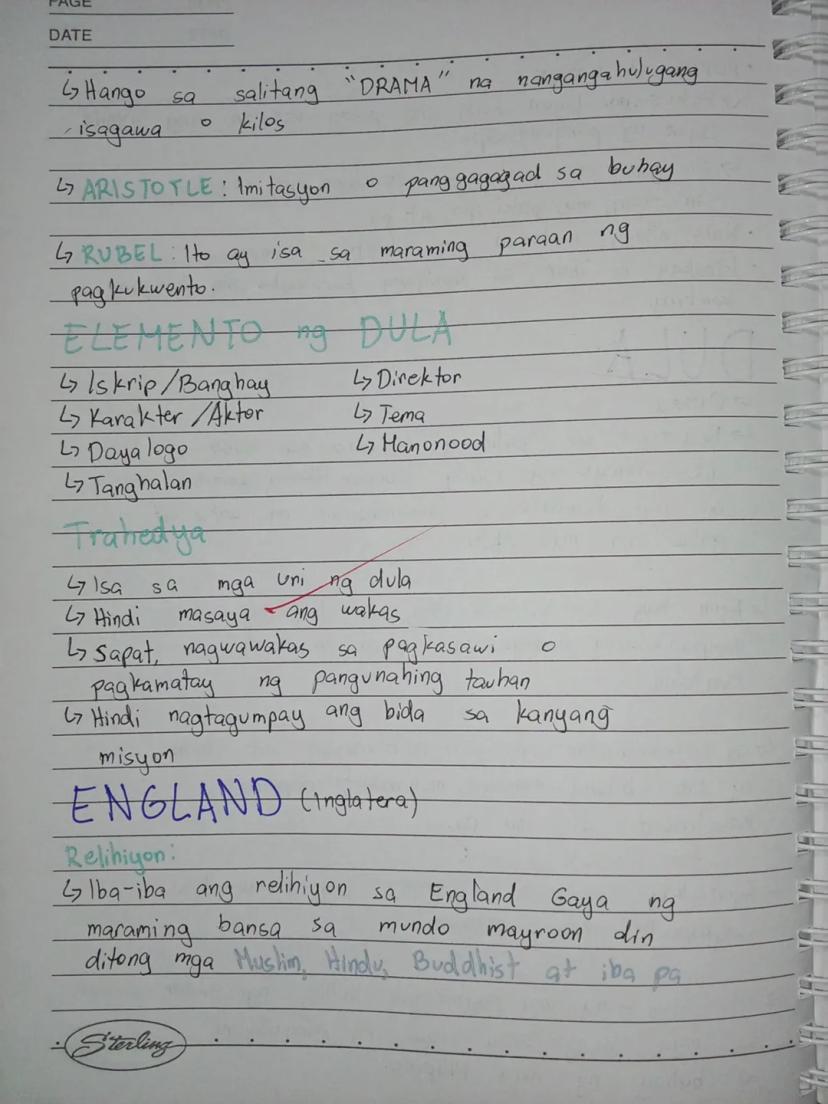 PAGE
DATE
↳ Hango sa salitang "DRAMA" na nangangahulugang
isagawa o kilos
↳ ARISTOTLE: Imitasyon o panggagagad sa buhay
↳ RUBEL: Ito ay isa sa maraming paraan ng
pagkukwento.
ELEMENTO ng DULA
↳ Iskrip/Banghay ↳ Direktor
↳ Karakter/Aktor ↳ Tema
↳ Dayalogo ↳ Manonood
↳ Tanghalan
Trahedya
↳ Isa sa mga uri ng dula
↳ Hindi masaya ang wakas
↳ Sapat, nagwawakas sa pagkasawi o
pagkamatay ng pangunahing tauhan
↳ Hindi nagtagumpay ang bida sa kanyang
misyon
ENGLAND (Inglatera)
Relihiyon:
↳ Iba-iba ang relihiyon sa England Gaya ng
maraming bansa sa mundo mayroon din
ditong mga Muslim, Hindu, Buddhist at iba pa
Sterling